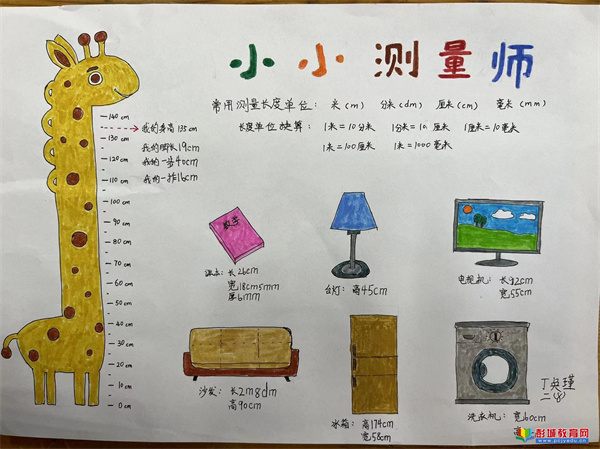 小小测量师
常用测量长度单位： 米（m） 分米（dm） 厘米（cm） 毫米（mm）
长度单位换算： 1米＝10分米 1分米＝10厘米 1厘米＝10毫米
1米＝100厘米 1米＝1000毫米
140 cm
130 cm
120 cm
110 cm
100 cm
90 cm
80 cm
70 cm
60 cm
50 cm
40 cm
30 cm
20 cm
10 cm
0 cm
我的身高 135cm
我的脚长19cm
我的一步40cm
我的一拃16cm
数学
课本： 长26cm
宽18cm5mm
厚6mm
台灯： 高45cm
电视机： 长92cm
宽55cm
沙发： 长2m8dm
高90cm
冰箱： 高174cm
宽58cm
洗衣机： 宽60cm
二④
彭城教育网
www.pcjyedu.cn